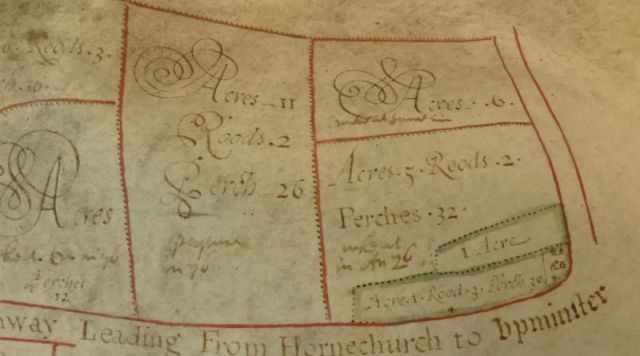 Roods. 3.
Acres
Perches
12
Acres - 11
Roods. 2
Perch - 26
pasture
in 70
Acres - 6.
Acres. 5. Roods. 2.
Perches. 32.
wheat
in An 26
1 Acre
Acre 1. Rood. 3. Perch. 30
way Leading From Hornechurch to Vpminster